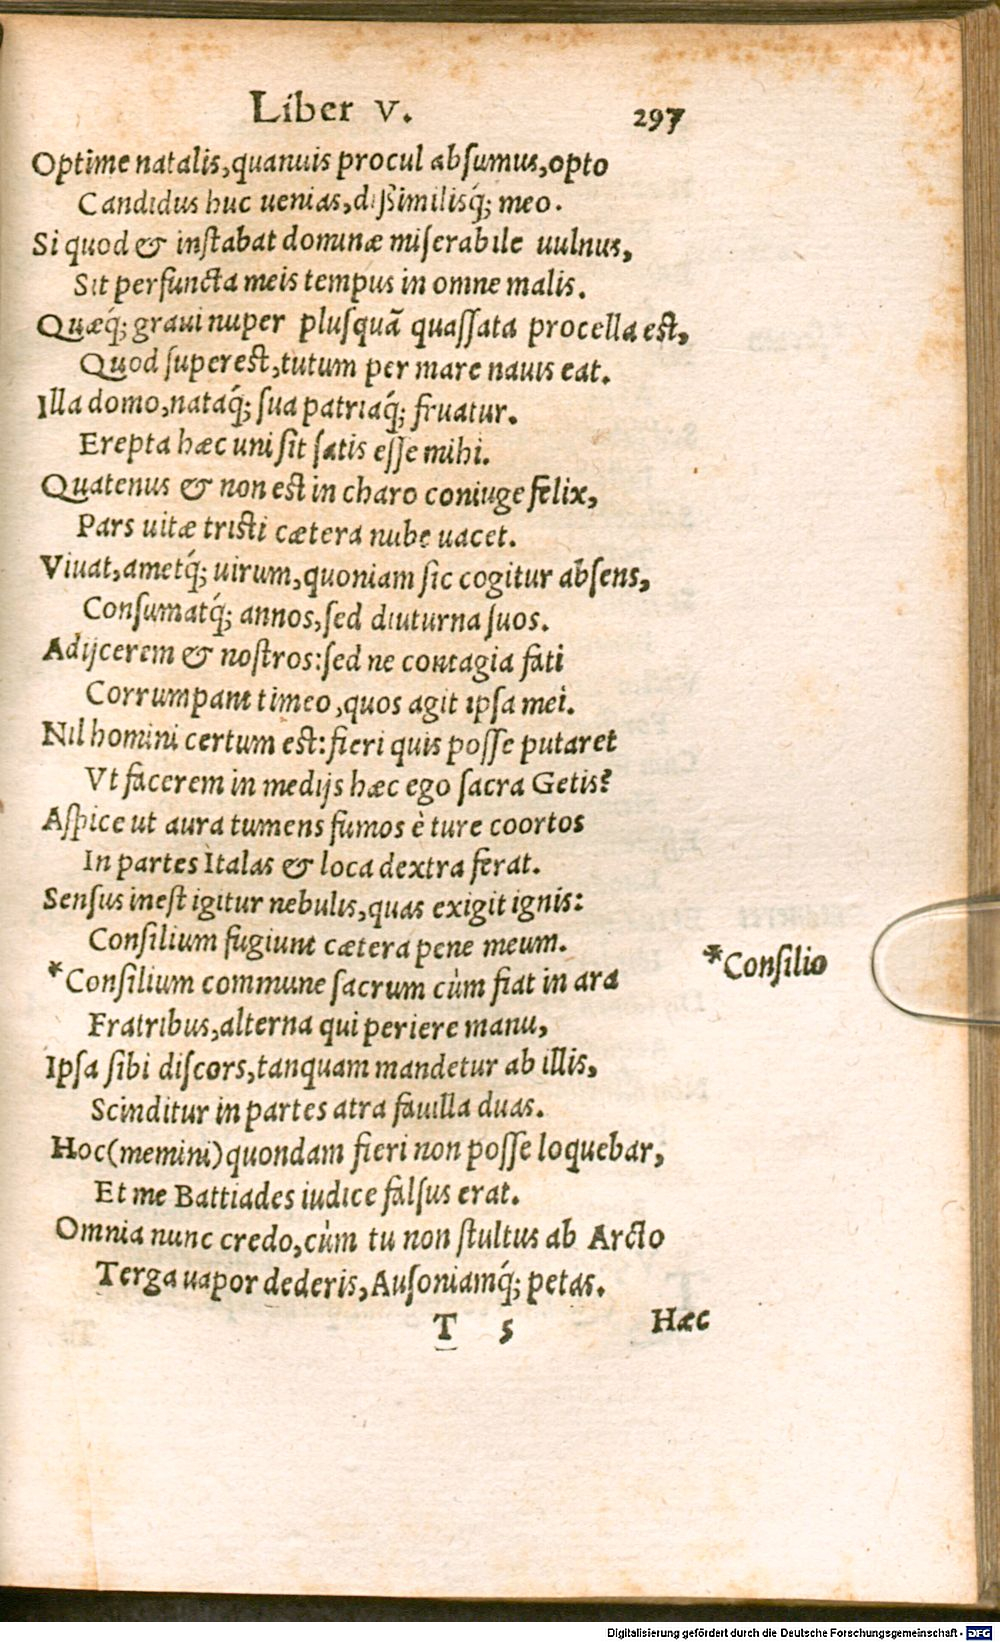 Liber V. 297
Optime natalis, quanuis procul absumus, opto
Candidus huc uenias, dißimilisq́; meo.
Si quod & instabat dominæ miserabile uulnus,
Sit perfuncta meis tempus in omne malis.
Quæq́; graui nuper plusquã quassata procella est,
Quod superest, tutum per mare nauis eat.
Illa domo, nataq́; sua patriaq́; fruatur.
Erepta hæc uni sit satis esse mihi.
Quatenus & non est in charo coniuge felix,
Pars uitæ tristi cætera nube uacet.
Viuat, ametq́; uirum, quoniam sic cogitur absens,
Consumatq́; annos, sed diuturna suos.
Adijcerem & nostros: sed ne contagia fati
Corrumpant timeo, quos agit ipsa mei.
Nil homini certum est: fieri quis posse putaret
Vt facerem in medijs hæc ego sacra Getis?
Aspice ut aura tumens fumos è ture coortos
In partes Italas & loca dextra ferat.
Sensus inest igitur nebulis, quas exigit ignis:
Consilium fugiunt cætera pene meum.
*Consilium commune sacrum cùm fiat in ara
*Consilio
Fratribus, alterna qui periere manu,
Ipsa sibi discors, tanquam mandetur ab illis,
Scinditur in partes atra fauilla duas.
Hoc (memini) quondam fieri non posse loquebar,
Et me Battiades iudice falsus erat.
Omnia nunc credo, cùm tu non stultus ab Arcto
Terga uapor dederis, Ausoniamq́; petas.
T 5 Hæc
Digitalisierung gefördert durch die Deutsche Forschungsgemeinschaft - DFG